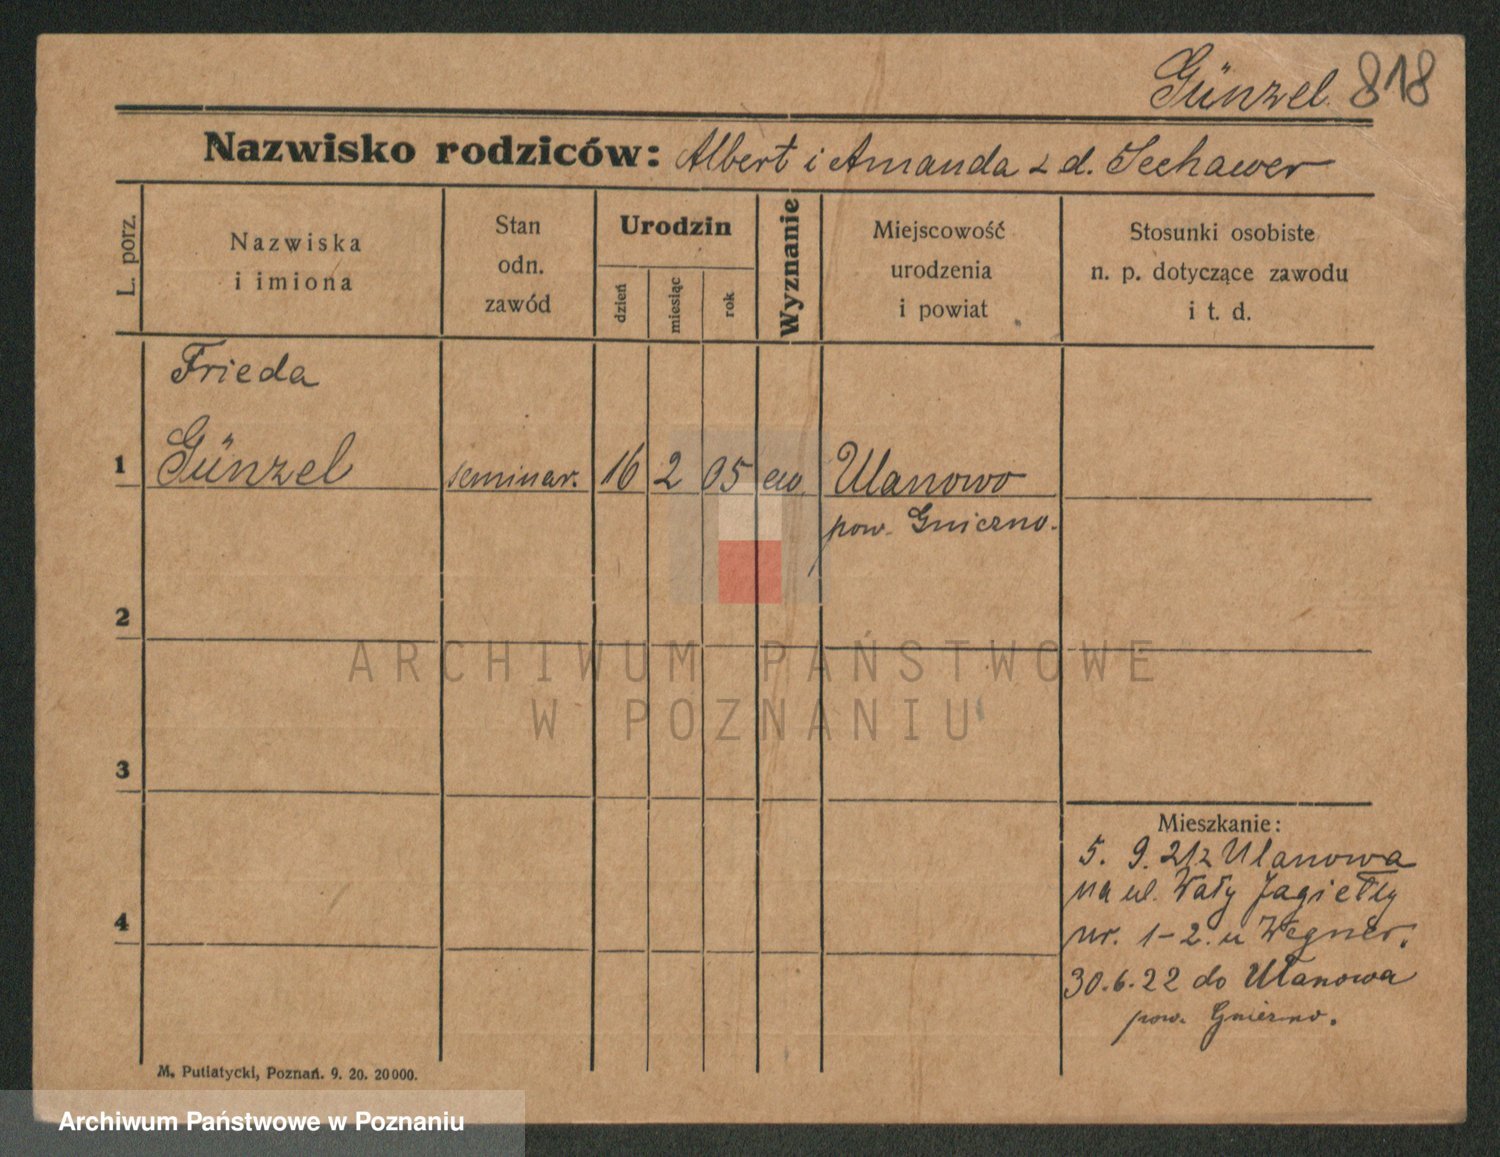 Günzel. 818
Nazwisko rodziców: Albert i Amanda z d. Sechawer
L. porz.
Nazwiska
i imiona
Stan
odn.
zawód
Urodzin
dzień
miesiąc
rok
Wyznanie
Miejscowość
urodzenia
i powiat
Stosunki osobiste
n. p. dotyczące zawodu
i t. d.
Frieda
1 Günzel seminar. 16 2 05 ew. Ulanowo
pow. Gniezno.
2
ARCHIWUM PAŃSTWOWE
W POZNANIU
3
Mieszkanie:
5. 9. 21 z Ulanowa
na ul. Wały Jagiełły
4
nr. 1-2. u Wegner.
30.6.22 do Ulanowa
pow. Gniezno.
M. Putiatycki, Poznań. 9. 20. 20000.
Archiwum Państwowe w Poznaniu